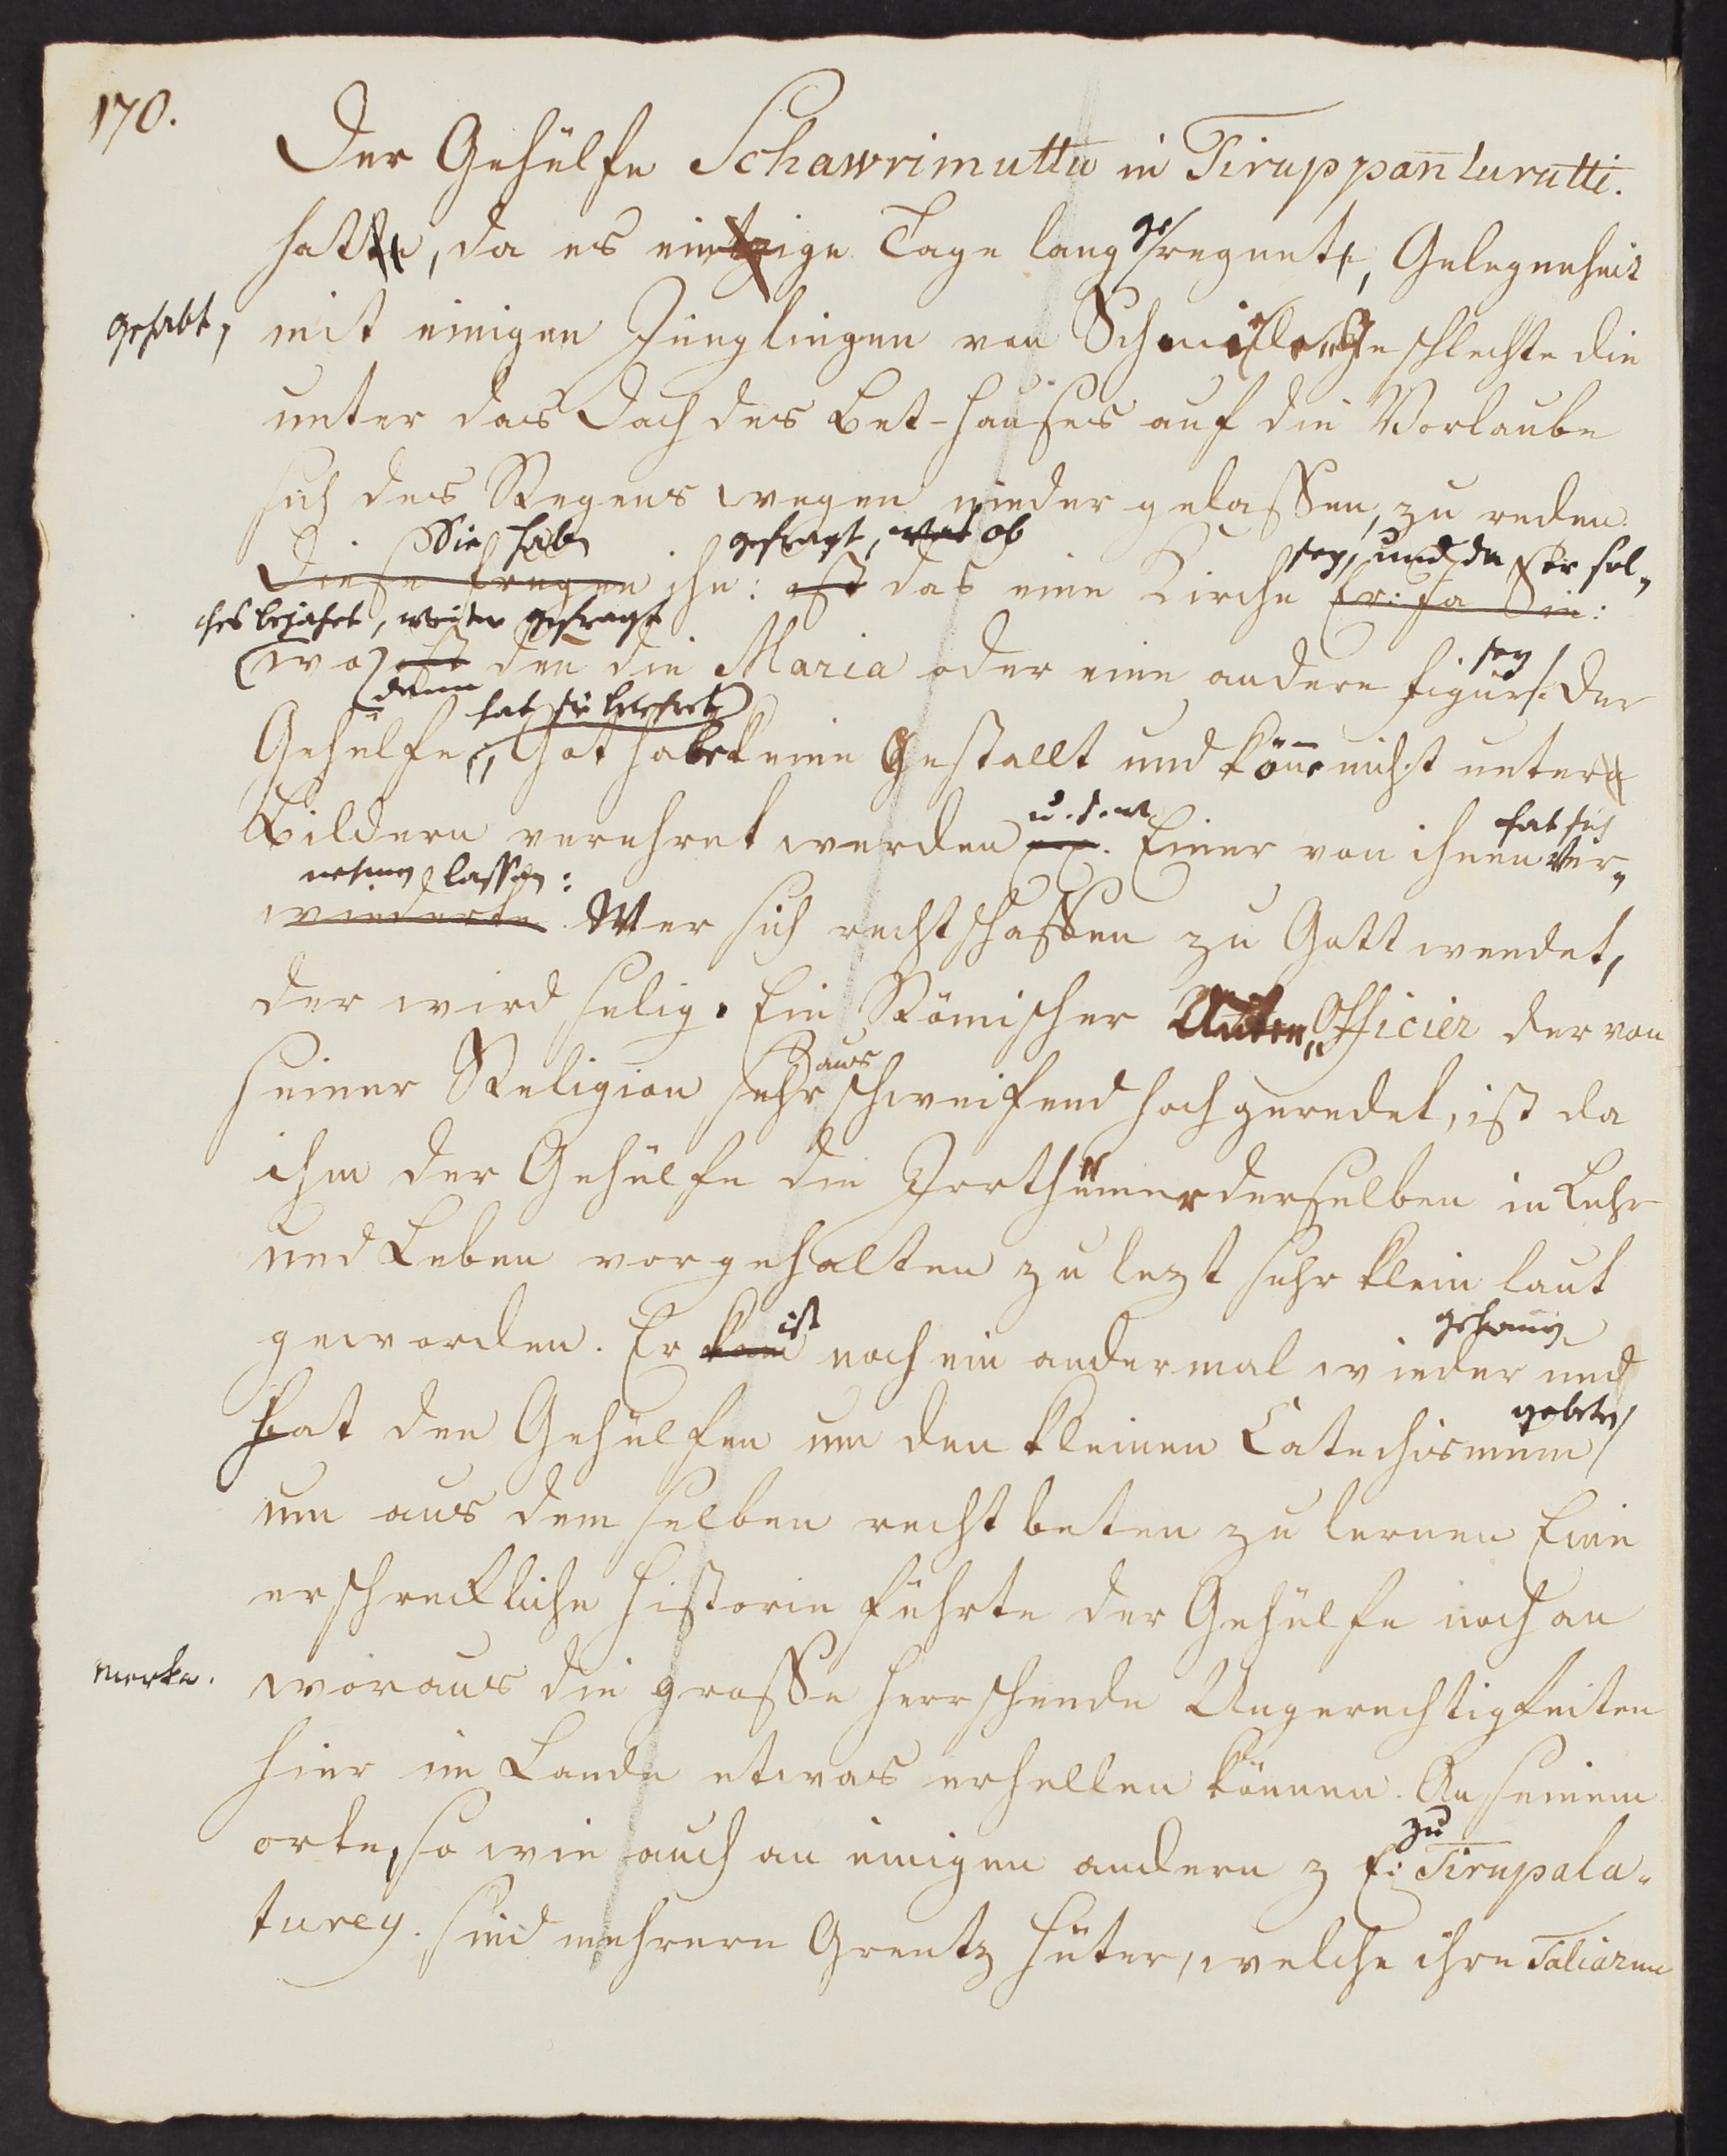 170.
Der Gehülfe Schawrimuttu in Tiruppanturutti.
hatte, da es eintzige Tage lang ge regnet, Gelegenheit
gehabt, mit einigen Jünglingen von Geschlechte die
unter das Dach des Bet-Hauses auf die Vorlaube
sich des Regens wegen nieder gelassen, zu reden.
Sie haben gefragt, ob sey, und da Er sol-
Diese fragen ihn: ist das eine Kirche Er: Ja Sie:
ches bejahet, weiter gefragt
(wo) ist den die Maria oder eine andere Figur sey. Der
denn hat sie belehret
Gehülfe, Got habe keine Gestallt und könne nicht unter
Bildern verehret werden u. s. w. Einer von ihnen hat sich ver-
nehmen lassen:
wiederte. Wer sich rechtschaffen zu Gott wendet,
der wird selig. Ein Römischer Unter Officier der von
seiner Religion sehr aus schweifend hoch geredet, ist da
ihm der Gehülfe die Irrthümer derselben in Lehr
und Leben vorgehalten zu lezt sehr klein laut
geworden. Er kam ist noch ein andermal wieder gekommen und
hat den Gehülfen um den kleinen Catechismum gebeten
um aus dem selben recht beten zu lernen Eine
erschreckliche Historie führte der Gehülfe noch an
merke. woraus die grosse herrschende Ungerechtigkeiten
hier im Lande etwas erhellen können. An seinem
orte, so wie auch an einigen andern z E: zu Tirupala-
turey. sind mehrere Grentz Hüter, welche ihre Taliaren